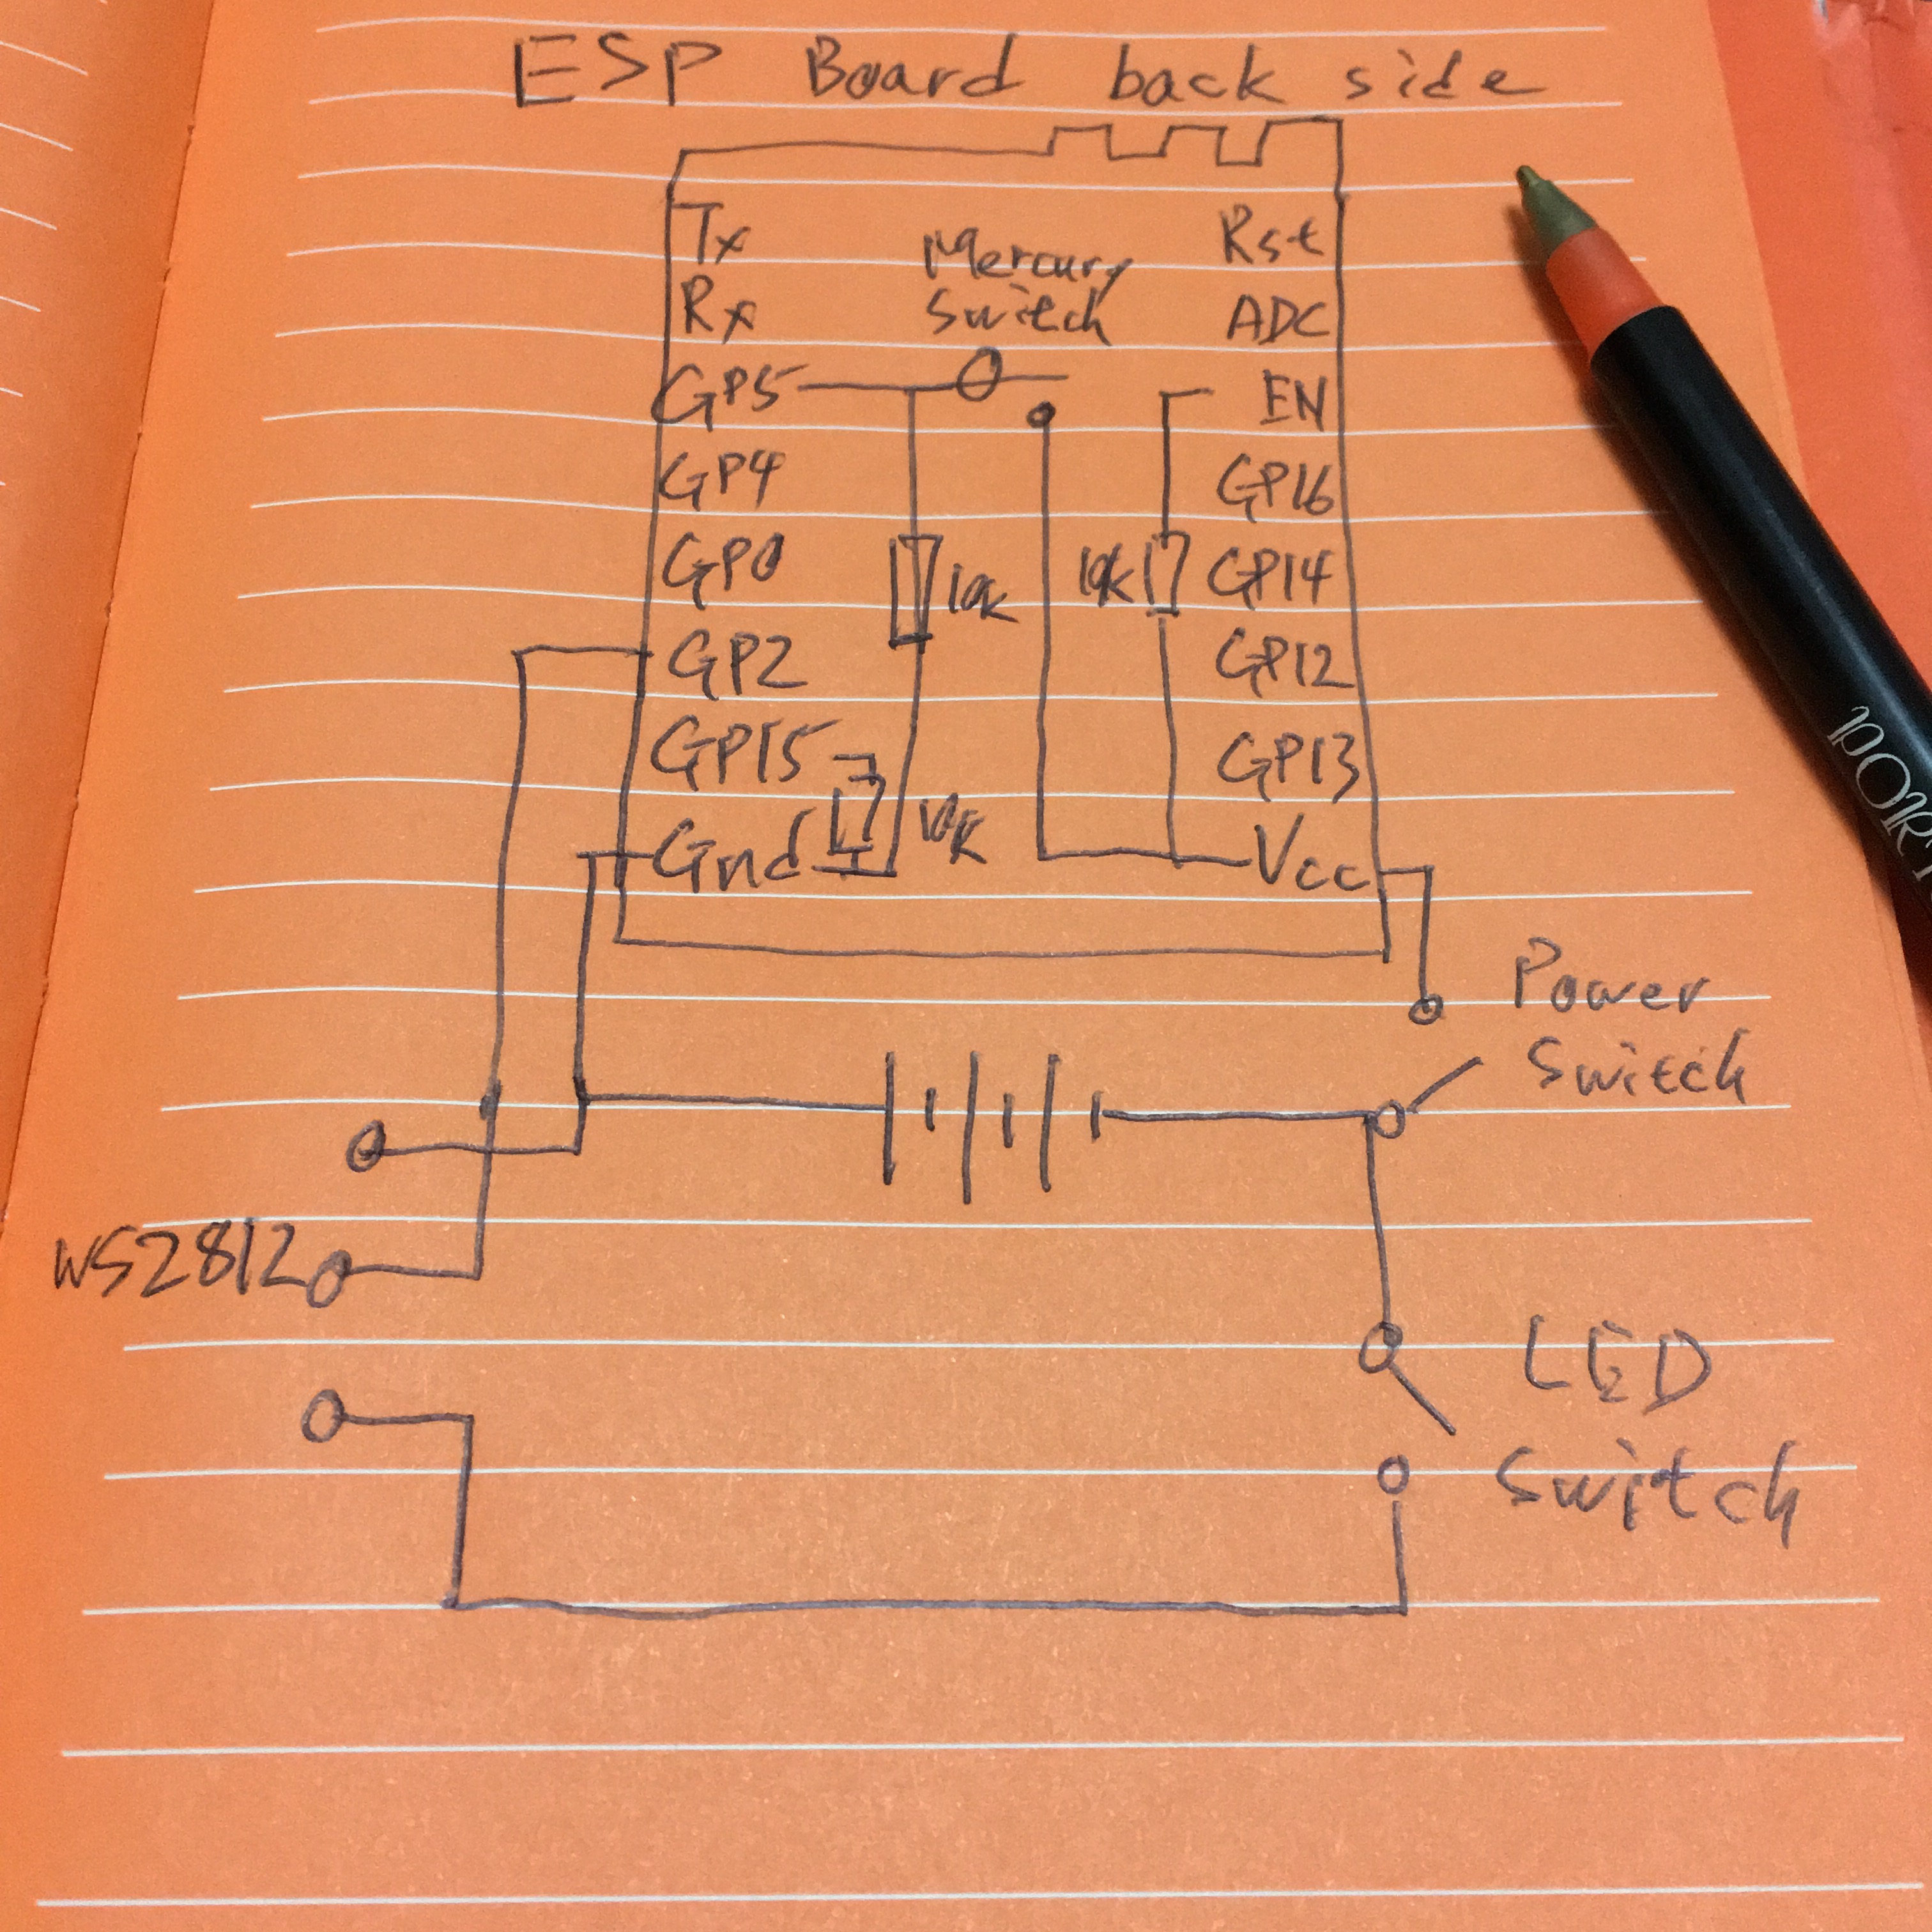 ESP Board back side
Tx
Rx
GP5
GP4
GP0
GP2
GP15
Gnd
Mercury
Switch
10k
10k
10k
Rst
ADC
EN
GP16
GP14
GP12
GP13
Vcc
Power
Switch
WS2812
LED
Switch
PORT